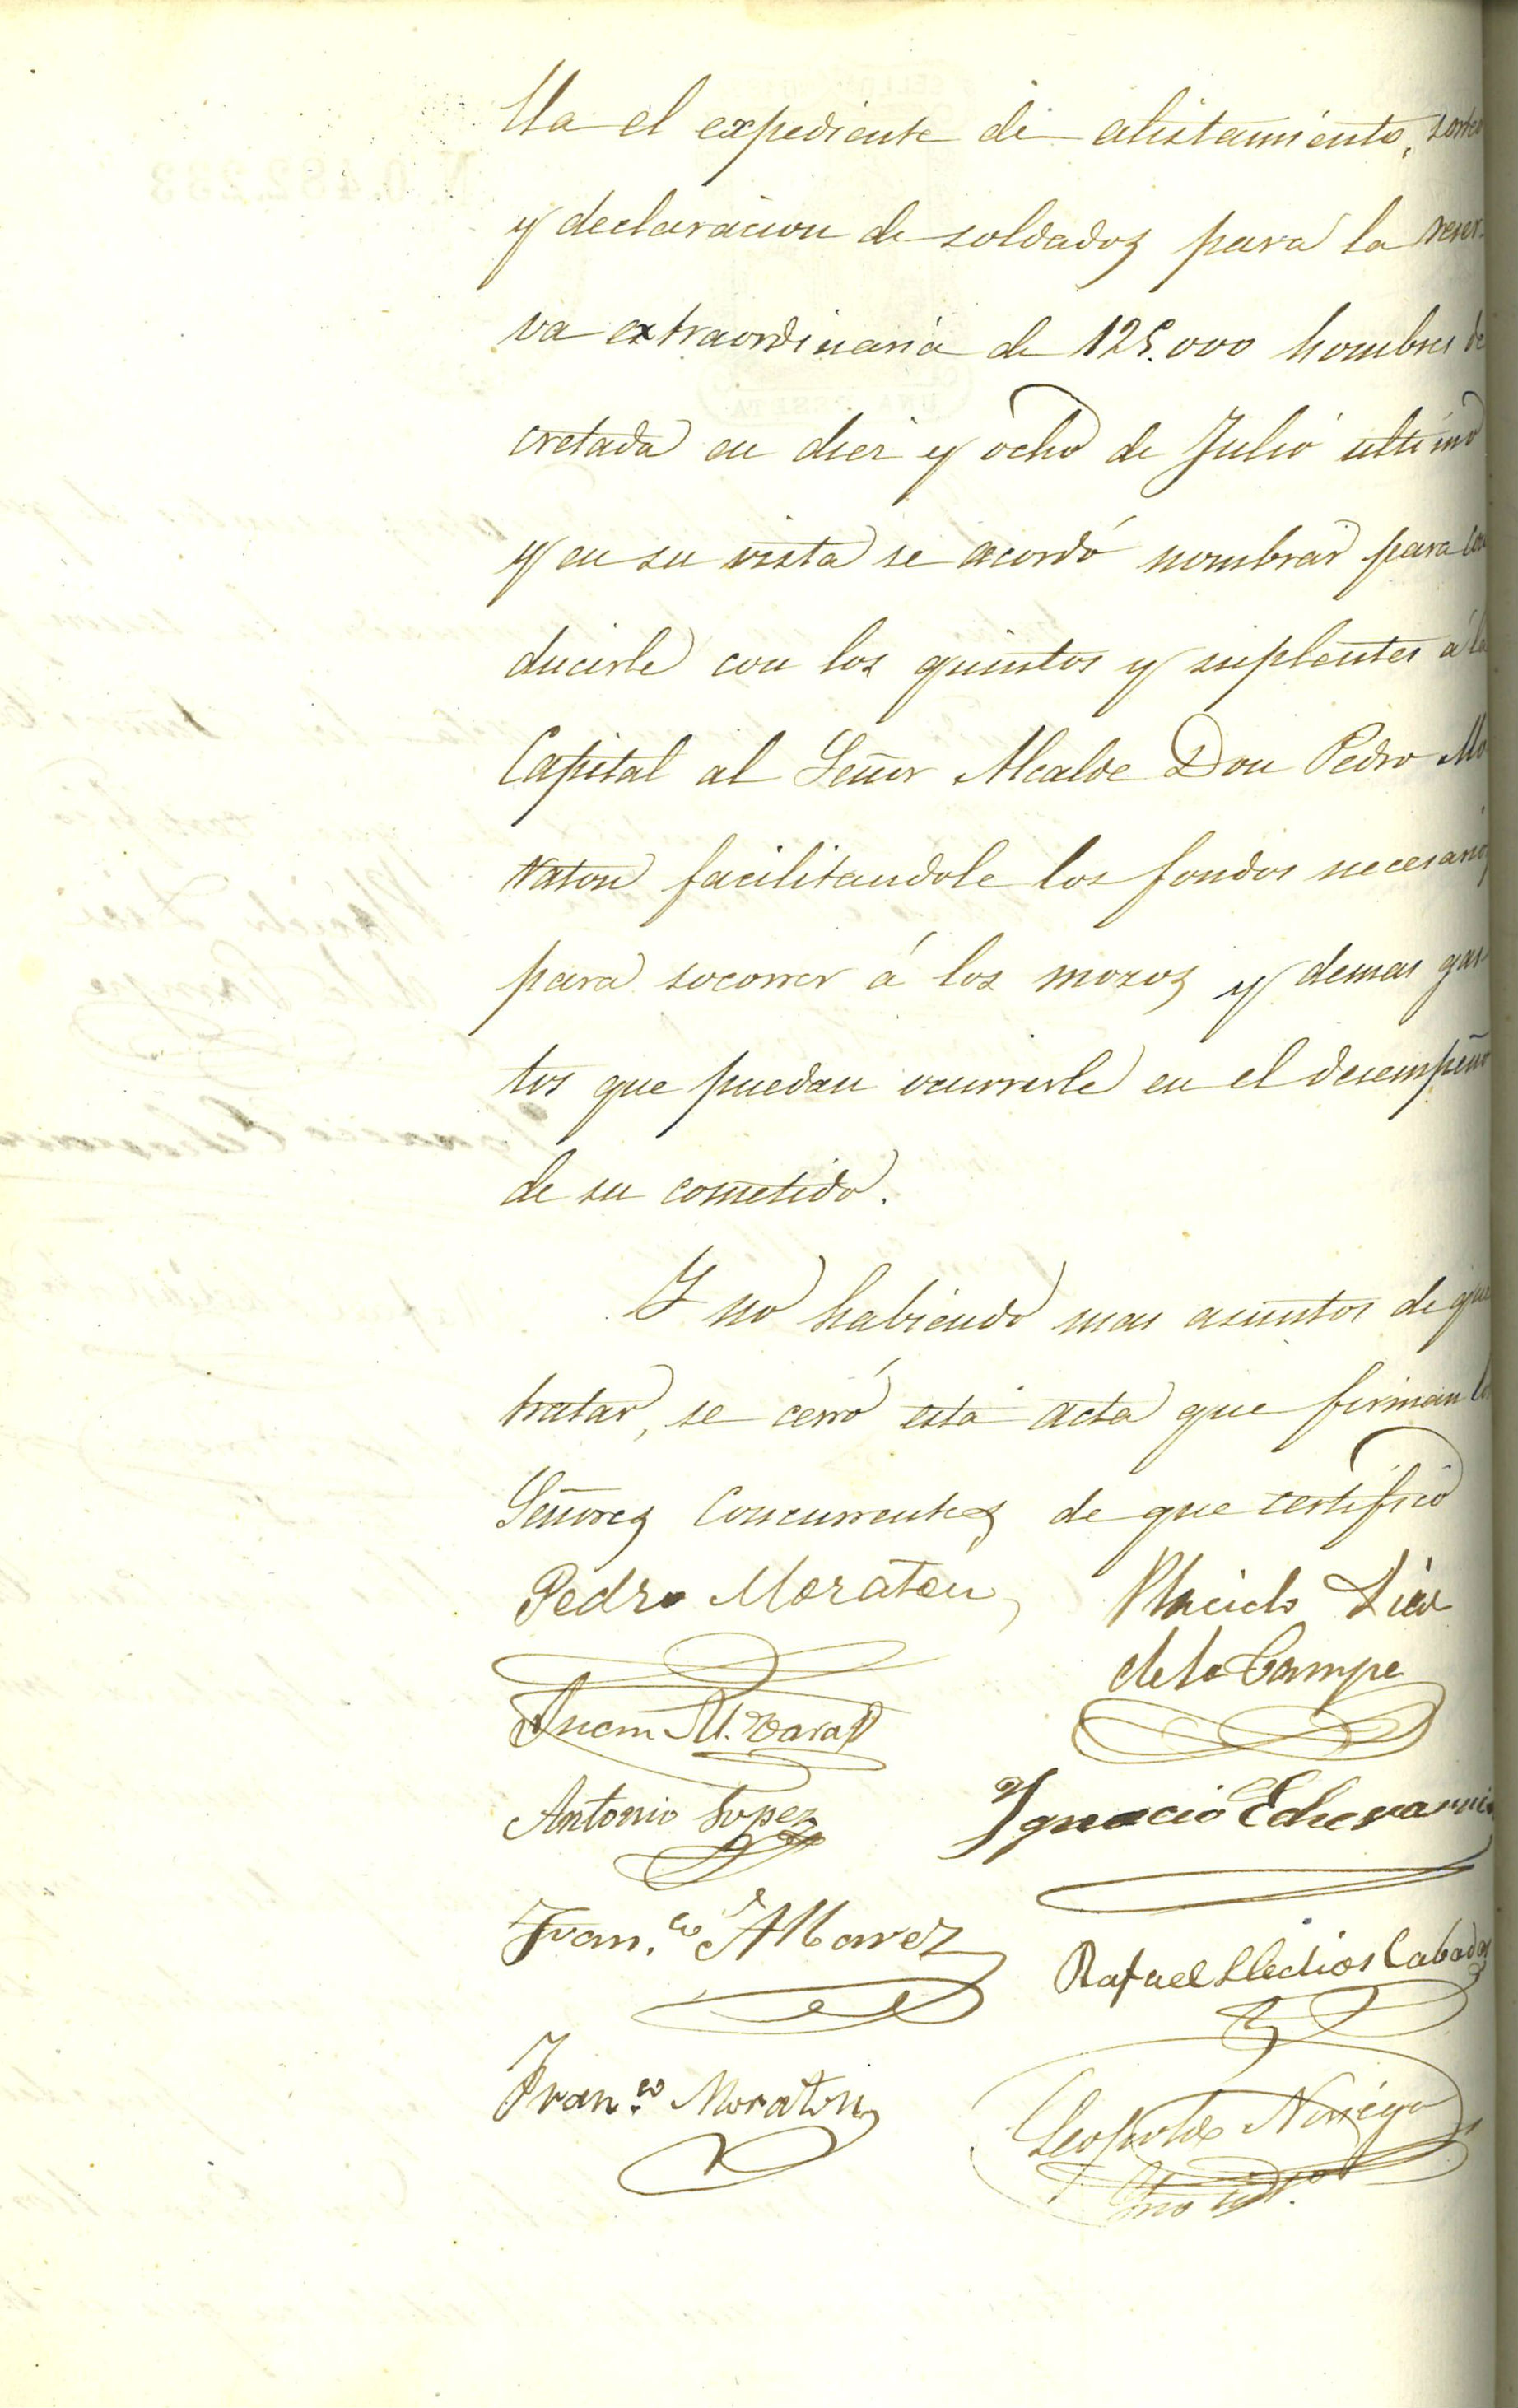 lla el expediente de alistamiento, sorteo
y declaracion de soldados para la reser-
va extraordinaria de 125.000 hombres de
cretada en diez y ocho de Julio ultimo
y en su vista se acordó nombrar para con
ducirle con los quintos y suplentes á la
Capital al Señor Alcalde Don Pedro Mo
raton facilitandole los fondos necesarios
para socorrer á los mozos y demas gas
tos que puedan ocurrirle en el desempeño
de su cometido.
Y no habiendo mas asuntos de que
tratar, se cerró esta acta que firman los
Señores Concurrentes de que certifico
Pedro Moraton
Placido Diez
de la Campa
Juan M.
Antonio Lopez
Ignacio Echevarria
Fran.co Alvarez
Rafael
Fran.co Moraton
Leopoldo Noriega